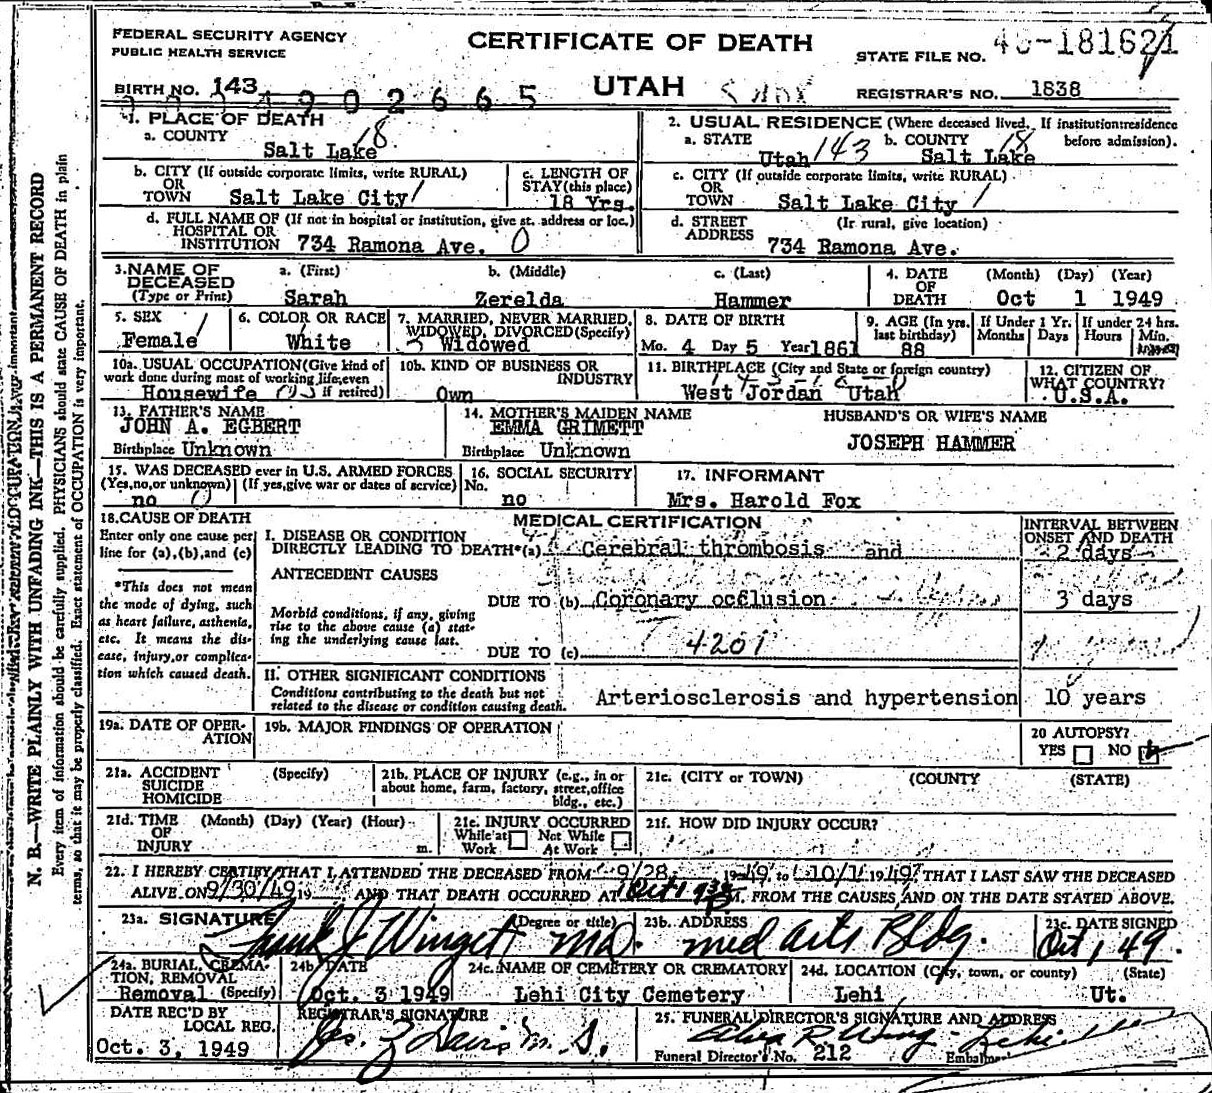 FEDERAL SECURITY AGENCY
PUBLIC HEALTH SERVICE
CERTIFICATE OF DEATH
UTAH
STATE FILE NO.
BIRTH NO. 143
4902665
REGISTRAR'S NO. 1838
1. PLACE OF DEATH
a. COUNTY
Salt Lake 18
b. CITY (If outside corporate limits, write RURAL)
OR
TOWN Salt Lake City
c. LENGTH OF
STAY (this place)
18 Yrs.
d. FULL NAME OF (If not in hospital or institution, give st. address or loc.)
HOSPITAL OR
INSTITUTION 734 Ramona Ave. 0
2. USUAL RESIDENCE (Where deceased lived. If institution: residence
before admission).
a. STATE Utah 143 b. COUNTY Salt Lake 18
c. CITY (If outside corporate limits, write RURAL)
OR
TOWN Salt Lake City
d. STREET (If rural, give location)
ADDRESS 734 Ramona Ave.
3. NAME OF
DECEASED
(Type or Print)
a. (First) b. (Middle) c. (Last)
Sarah Zerelda Hammer
4. DATE
OF
DEATH
(Month) (Day) (Year)
Oct 1 1949
5. SEX
Female
6. COLOR OR RACE
White
7. MARRIED, NEVER MARRIED,
WIDOWED, DIVORCED (Specify)
3 Widowed
8. DATE OF BIRTH
Mo. 4 Day 5 Year 1861
9. AGE (In yrs.
last birthday)
88
If Under 1 Yr.
Months Days
If under 24 hrs.
Hours Min.
10a. USUAL OCCUPATION (Give kind of
work done during most of working life, even
if retired)
Housewife
10b. KIND OF BUSINESS OR
INDUSTRY
Own
11. BIRTHPLACE (City and State or foreign country)
West Jordan Utah
12. CITIZEN OF
WHAT COUNTRY?
U.S.A.
13. FATHER'S NAME
JOHN A. EGBERT
Birthplace Unknown
14. MOTHER'S MAIDEN NAME
EMMA GRIMETT
Birthplace Unknown
HUSBAND'S OR WIFE'S NAME
JOSEPH HAMMER
15. WAS DECEASED ever in U.S. ARMED FORCES
(Yes, no, or unknown) (If yes, give war or dates of service)
no 0
16. SOCIAL SECURITY
No.
no
17. INFORMANT
Mrs. Harold Fox
18. CAUSE OF DEATH
Enter only one cause per
line for (a), (b), and (c)
*This does not mean
the mode of dying, such
as heart failure, asthenia,
etc. It means the dis-
ease, injury, or complica-
tion which caused death.
MEDICAL CERTIFICATION
I. DISEASE OR CONDITION
DIRECTLY LEADING TO DEATH*(a) Cerebral thrombosis and
ANTECEDENT CAUSES
DUE TO (b) Coronary occlusion
Morbid conditions, if any, giving
rise to the above cause (a) stat-
ing the underlying cause last.
DUE TO (c)
4201
II. OTHER SIGNIFICANT CONDITIONS
Conditions contributing to the death but not
related to the disease or condition causing death.
Arteriosclerosis and hypertension
INTERVAL BETWEEN
ONSET AND DEATH
2 days
3 days
10 years
19a. DATE OF OPER-
ATION
19b. MAJOR FINDINGS OF OPERATION
20 AUTOPSY?
YES NO
21a. ACCIDENT (Specify)
SUICIDE
HOMICIDE
21b. PLACE OF INJURY (e.g., in or
about home, farm, factory, street, office
bldg., etc.)
21c. (CITY or TOWN) (COUNTY) (STATE)
21d. TIME (Month) (Day) (Year) (Hour)
OF
INJURY m.
21e. INJURY OCCURRED
While at Work Not While At Work
21f. HOW DID INJURY OCCUR?
22. I HEREBY CERTIFY THAT I ATTENDED THE DECEASED FROM 9/28, 19 49, to 10/1 19 49 THAT I LAST SAW THE DECEASED
ALIVE ON 9/30/49 19 AND THAT DEATH OCCURRED AT M. FROM THE CAUSES AND ON THE DATE STATED ABOVE.
23a. SIGNATURE (Degree or title)
Frank J Winget MD.
23b. ADDRESS
med arts Bldg.
23c. DATE SIGNED
Oct 1, 49.
24a. BURIAL, CREMA-
TION, REMOVAL
Removal (Specify)
24b. DATE
Oct. 3 1949
24c. NAME OF CEMETERY OR CREMATORY
Lehi City Cemetery
24d. LOCATION (City, town, or county) (State)
Lehi Ut.
DATE REC'D BY
LOCAL REG.
Oct. 3, 1949
REGISTRAR'S SIGNATURE
25. FUNERAL DIRECTOR'S SIGNATURE AND ADDRESS
Funeral Director's No. 212
N. B.—WRITE PLAINLY WITH UNFADING INK—THIS IS A PERMANENT RECORD
Every item of information should be carefully supplied. PHYSICIANS should state CAUSE OF DEATH in plain
terms, so that it may be properly classified. Exact statement of OCCUPATION is very important.